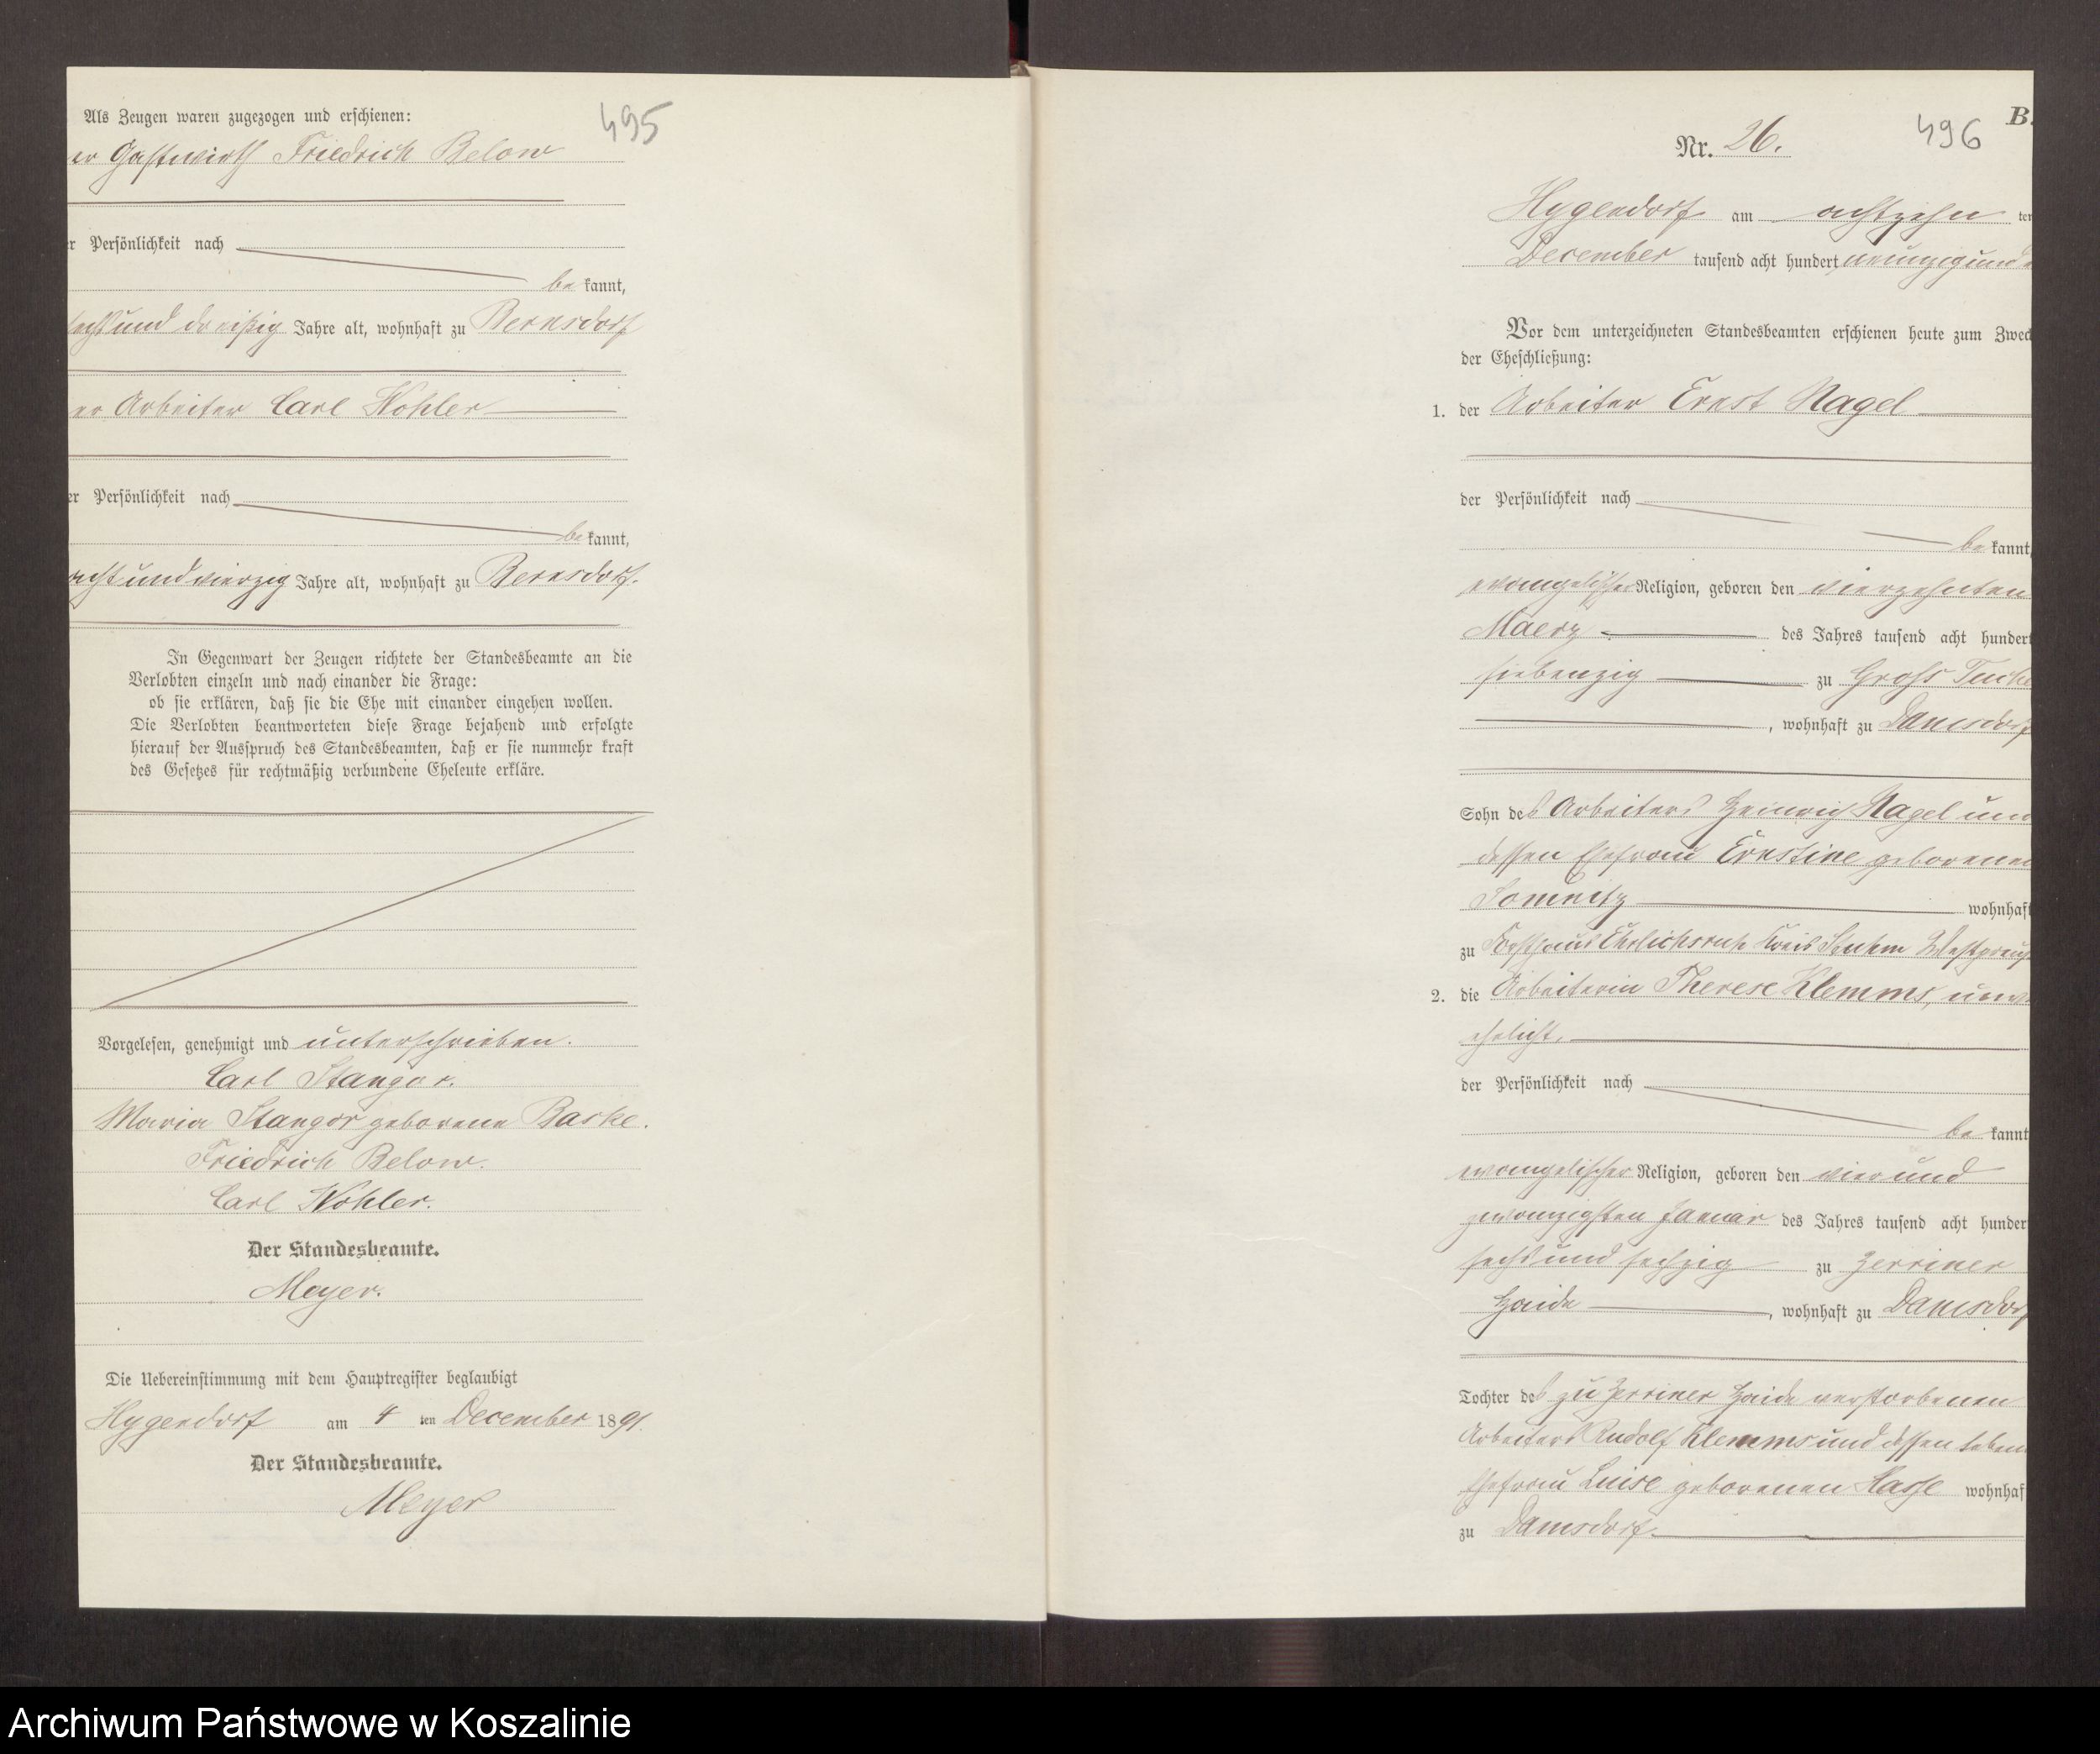 Als Zeugen waren zugezogen und erschienen:
495
er Gastwirth Friedrich Below
r Persönlichkeit nach
be kannt,
sechs und dreißig Jahre alt, wohnhaft zu Bernsdorf
er Arbeiter Carl Kohler
er Persönlichkeit nach
be kannt,
acht und vierzig Jahre alt, wohnhaft zu Bernsdorf.
In Gegenwart der Zeugen richtete der Standesbeamte an die
Verlobten einzeln und nach einander die Frage:
ob sie erklären, daß sie die Ehe mit einander eingehen wollen.
Die Verlobten beantworteten diese Frage bejahend und erfolgte
hierauf der Ausspruch des Standesbeamten, daß er sie nunmehr kraft
des Gesetzes für rechtmäßig verbundene Eheleute erkläre.
Vorgelesen, genehmigt und unterschrieben.
Carl Stangor.
Maria Stangor geborene Baske.
Friedrich Below.
Carl Kohler.
Der Standesbeamte.
Meyer.
Die Uebereinstimmung mit dem Hauptregister beglaubigt
Hygendorf am 4 ten December 1891.
Der Standesbeamte.
Meyer
B.
496
Nr. 26.
Hygendorf am achtzehn ten
December tausend acht hundert neunzig und
Vor dem unterzeichneten Standesbeamten erschienen heute zum Zweck
der Eheschließung:
1. der Arbeiter Ernst Nagel
der Persönlichkeit nach
be kannt,
evangelischer Religion, geboren den vierzehnten
Maerz des Jahres tausend acht hundert
siebenzig zu Groß
, wohnhaft zu Damsdorf
Sohn des Arbeiters Heinrich Nagel und
dessen Ehefrau Ernestine geborenen
wohnhaft
zu Forsthaus Ehrlichsruh Kreis Stuhm Westpreuß
2. die Arbeiterin Therese Klemms, unver
ehelicht.
der Persönlichkeit nach
be kannt
evangelischer Religion, geboren den vier und
zwanzigsten Januar des Jahres tausend acht hunder
sechs und sechzig zu Zerriner
Haide , wohnhaft zu Damsdorf
Tochter des zu Zerriner Haide verstorbenen
Arbeiters Rudolf Klemms und dessen leben
Ehefrau Luise geborenen Hasse wohnhaf
zu Damsdorf.
Archiwum Państwowe w Koszalinie